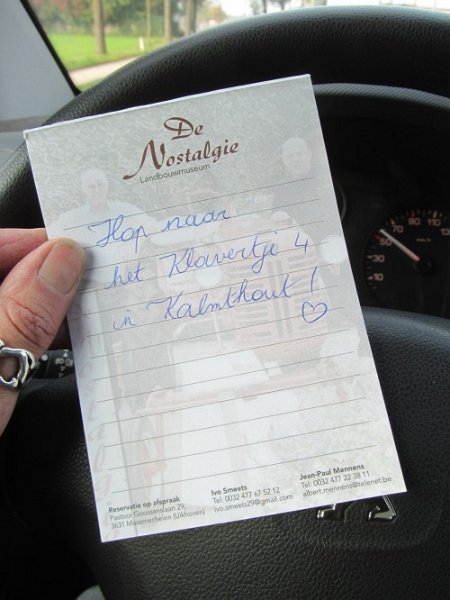 De
Nostalgie
Landbouwmuseum
Hop naar
het Klavertje 4
in Kalmthout!
Reservatie op afspraak
Pastoor Goossenslaan 29,
3631 Maasmechelen (Uikhoven)
Ivo Smeets
Tel: 0032 477 67 52 12
ivo.smeets29@gmail.com
Jean-Paul Mennens
Tel: 0032 477 22 38 11
albert.mennens@telenet.be
10
30
50
70
90
110
130